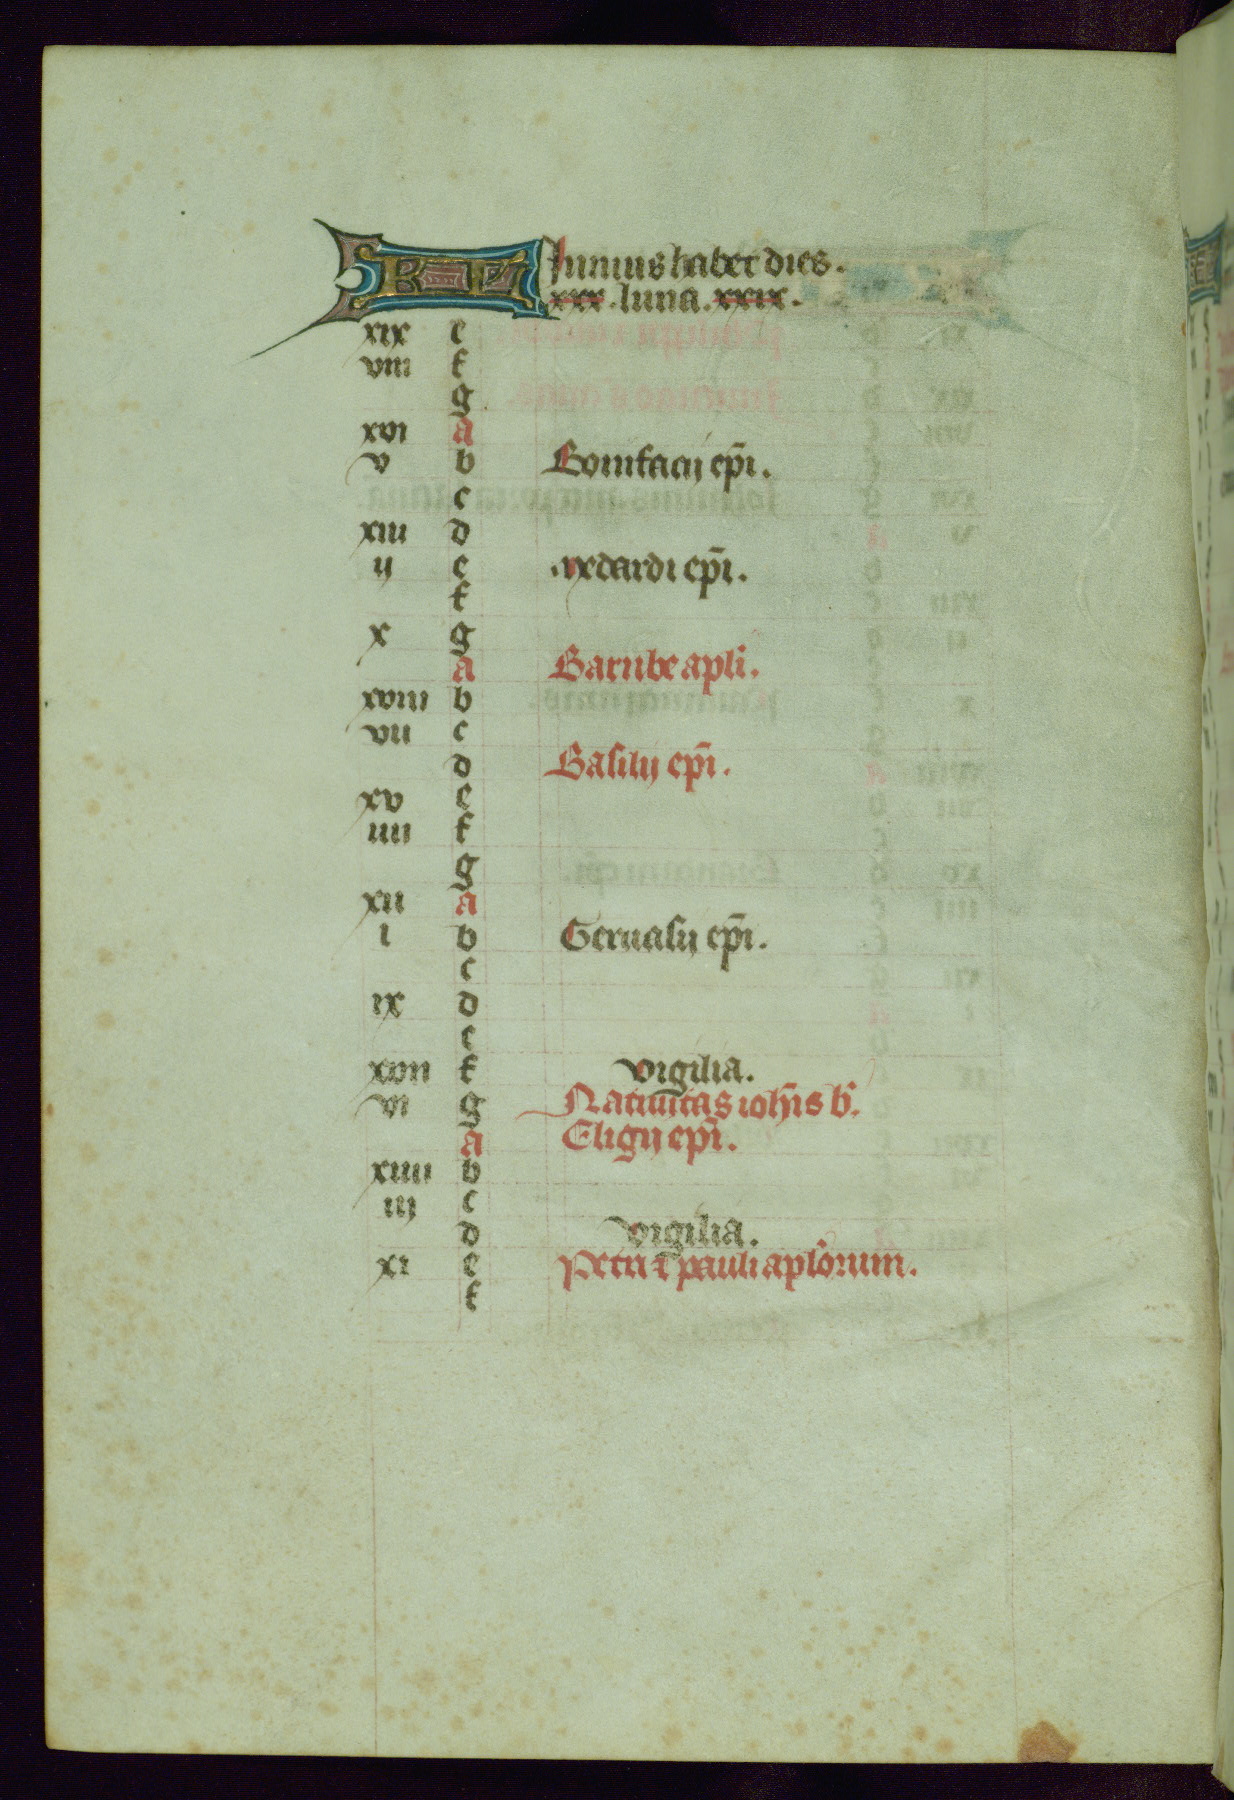 KL Junius habet dies.
xxx. luna. xxix.
xix e
viii f
g
xvi a
v b Bonifacij ep̄i.
c
xiii d
ij e Medardi ep̄i.
f
x g
a Barnabe apl̄i.
xviii b
vii c
d Basilij ep̄i.
xv e
iiii f
g
xii a
i b Geruasij ep̄i.
c
ix d
e
xvii f vigilia.
vi g Natiuitas ioh̄is b.
a Eligij ep̄i.
xiiii b
iij c
d vigilia.
xi e Petri ⁊ pauli apl̄orum.
f